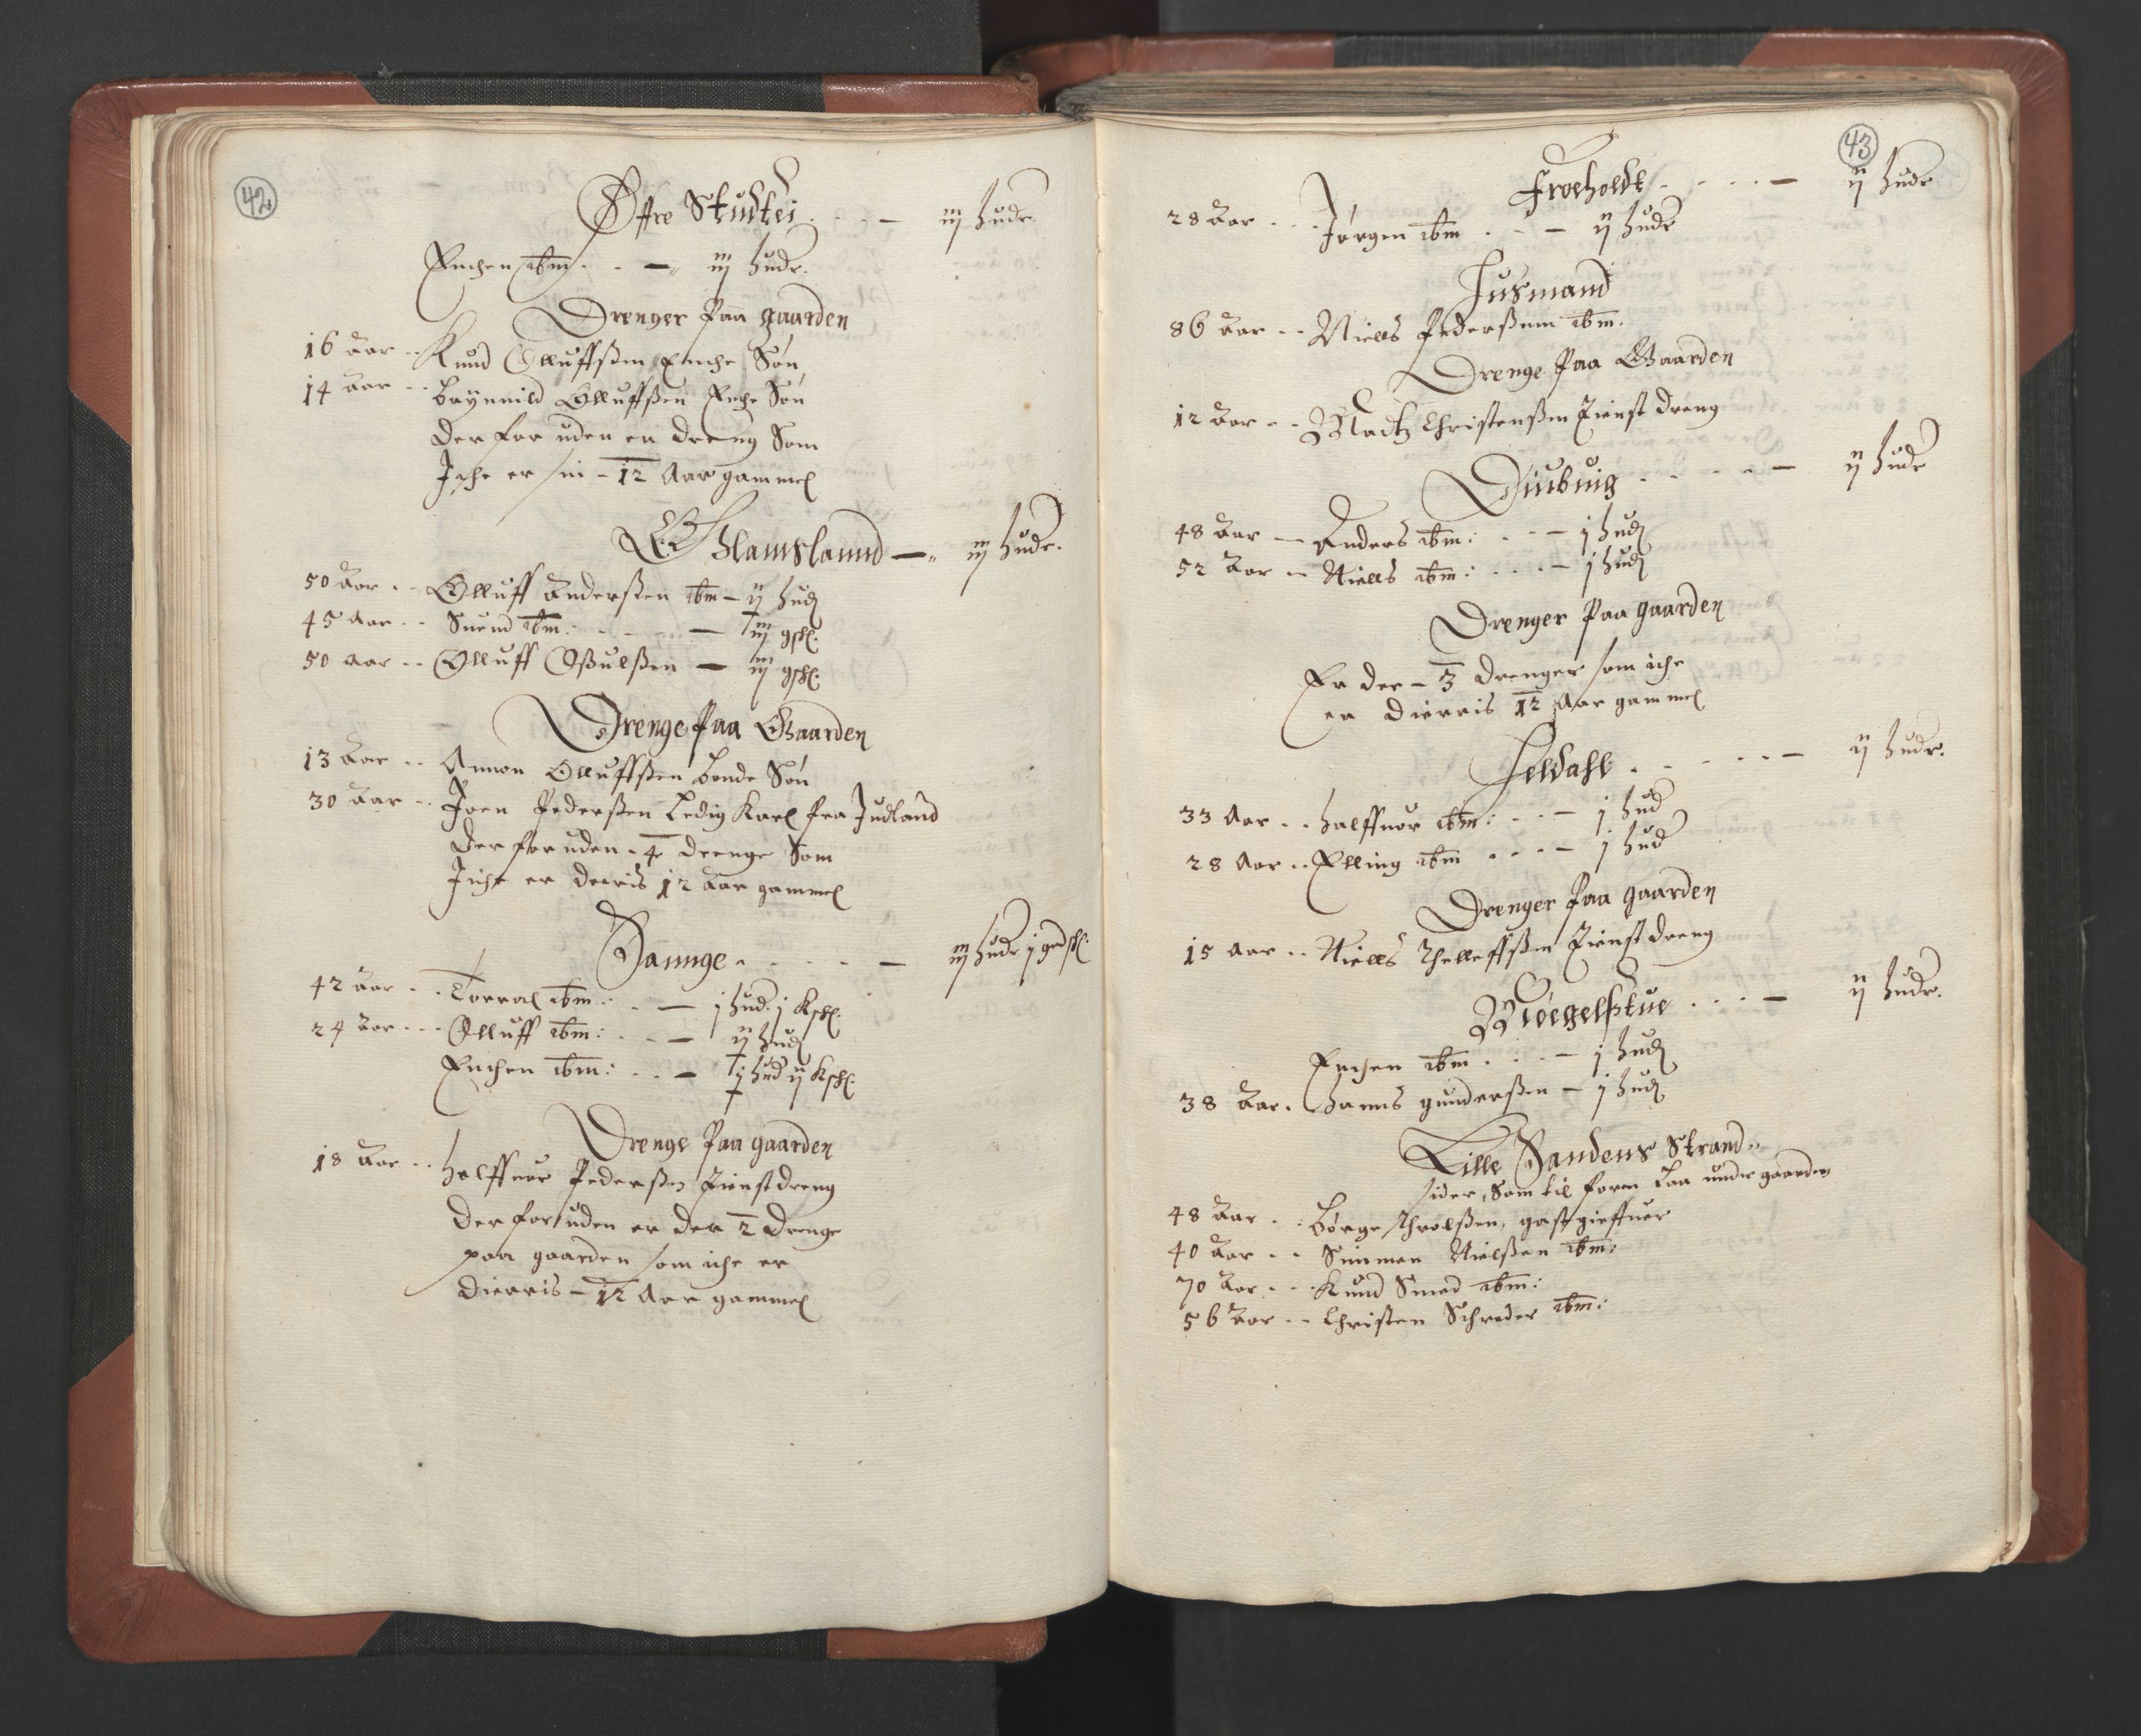 42
Øffre Studtei . . . — iij hudr.
Enchen ibm . . — iij hudr.
Drenger Paa gaarden
16 Aar .. Knud Olluffsßen Enche Søn
14 Aar .. Brynnild Olluffsßen Enche Søn
Der for uden en dreng Som
Iche er sin - 12 Aar gammel
Glamslannd — iij hudr.
50 Aar .. Olluff Anderßen ibm — ij hud
45 Aar .. Suend ibm: . . . — iij gsk.
50 aar .. Olluff Oßulßen — iij gsk.
Drenge Paa Gaarden
13 Aar .. Amon Olluffsßen bonde Søn
30 Aar .. Joen Pederßen Ledig Karl fra Judland
Der for uden - 4 drenge Som
Iche er deris 12 Aar gammel
Saunge . . . . — iij hudr j gedsk.
42 aar .. Torral ibm: . . — j hud. j Ksk.
24 Aar ... Olluff ibm: . . — ij hud
Enchen ibm: . . — j hud ij Ksk.
Drenge Paa gaarden
18 Aar .. halffuor Pederßen Tienst dreng
Der for uden er der 2 drenge
paa gaarden som iche er
dierris - 12 Aar gammel
43
Froeholdt . . . . — ij hudr
28 Aar . . Jørgen ibm . . — ij hudr
Husmand
86 Aar .. Niells Pederßenn ibm.
Drenge Paa Gaarden
12 Aar .. Madtz Christenßen Tienst dreng
Diubuig . . . . — ij hudr
48 Aar — Anders ibm: . . — j hud
52 Aar — Niells ibm: . . . — j hud
Drenger Paa gaarden
Er der - 3 drenger som iche
er dierris 12 Aar gammel
Heldahl . . . . — ij hudr.
33 Aar .. halffuor ibm: . . — j hud
28 Aar .. Elling ibm . . . — j hud
Drenger Paa gaarden
15 Aar .. Niells Thelleffsßen Tienst dreng
Møegelstue . . . — ij hudr.
Enchen ibm . . . — j hud
38 Aar. hanns gunderßen — j hud
Lille Sandens Strand-
sider, Som til foren Laa under gaarden
48 Aar .. Børge Throlßen, gastgieffuer
40 Aar .. Simmen Nielßen ibm:
70 Aar ... Knud Smed ibm:
56 Aar .. Christen Schreder ibm: